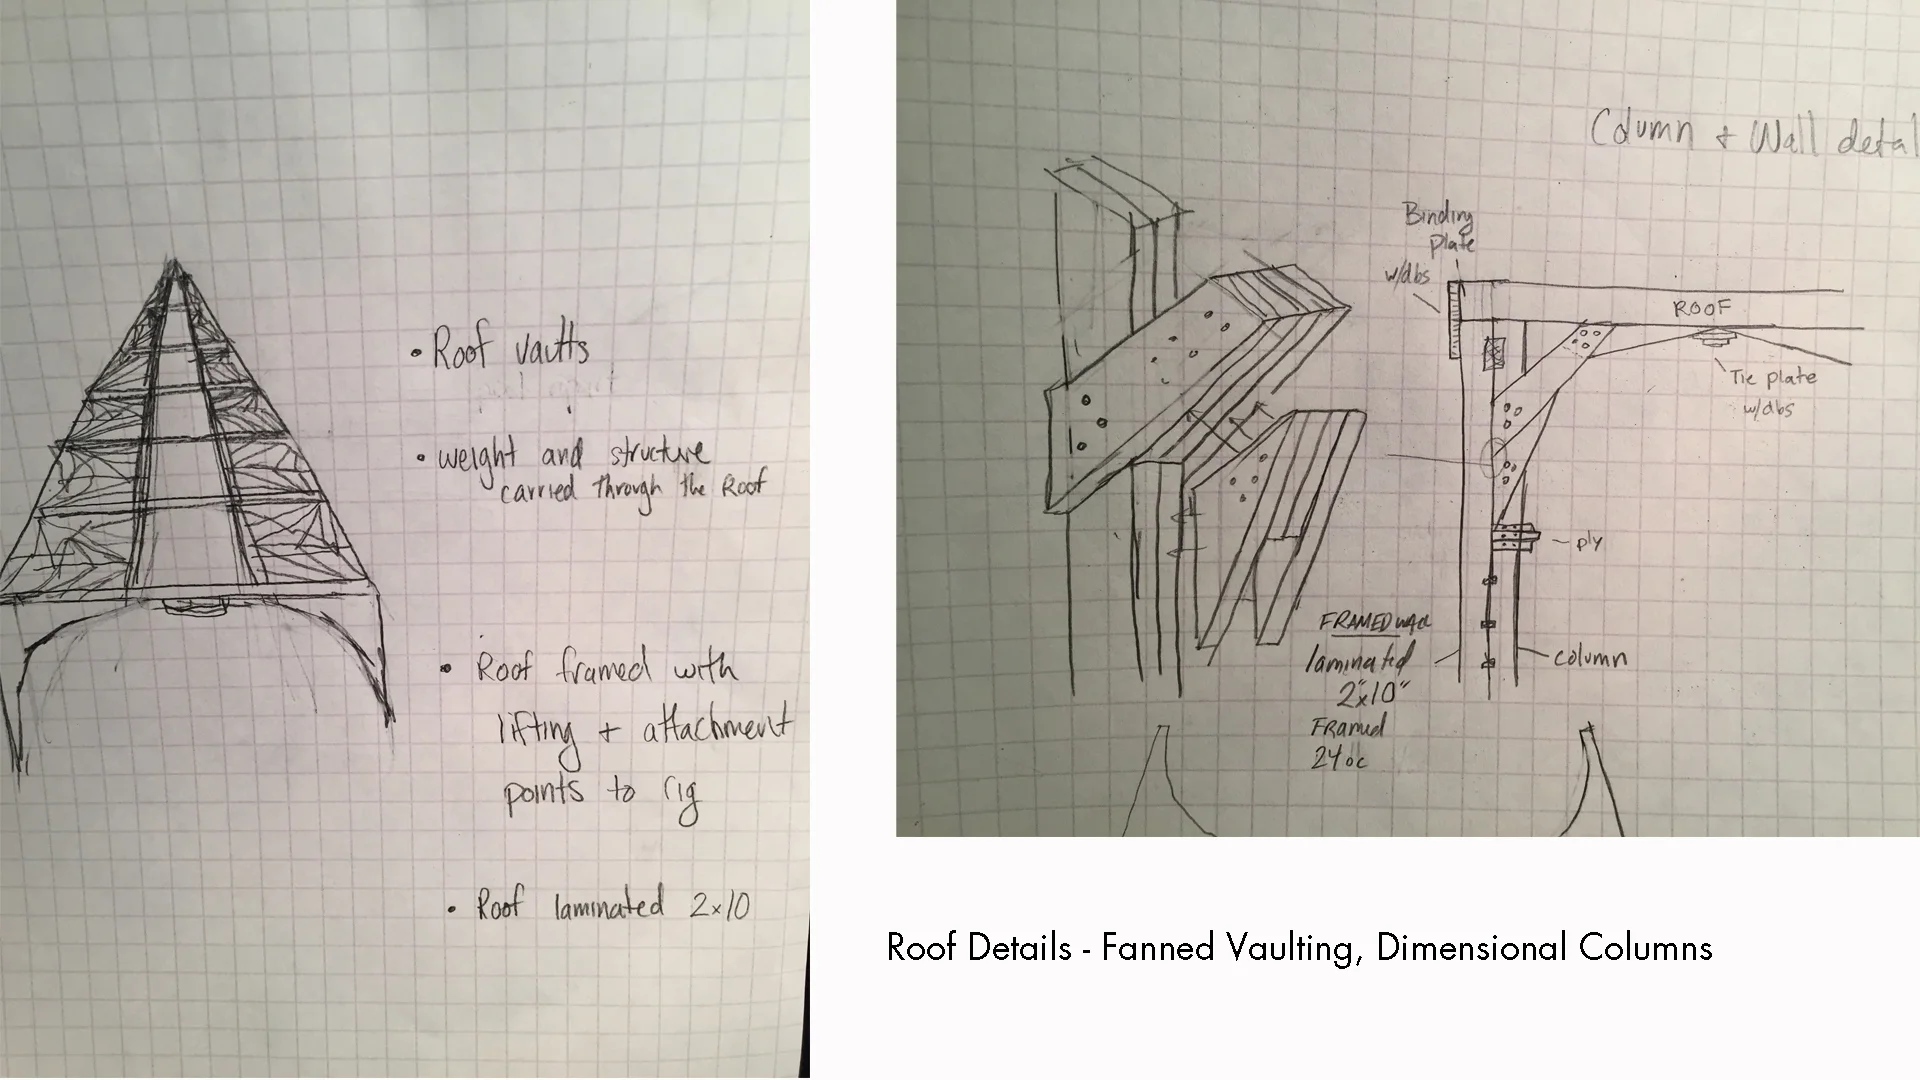 • Roof vaults
• weight and structure
carried through the Roof
• Roof framed with
lifting + attachment
points to rig
• Roof laminated 2x10
Column + Wall detal
Binding
plate
w/dbs
ROOF
Tie plate
w/dbs
ply
FRAMED wall
laminated
2"x10"
Framed
24 oc
column
Roof Details - Fanned Vaulting, Dimensional Columns